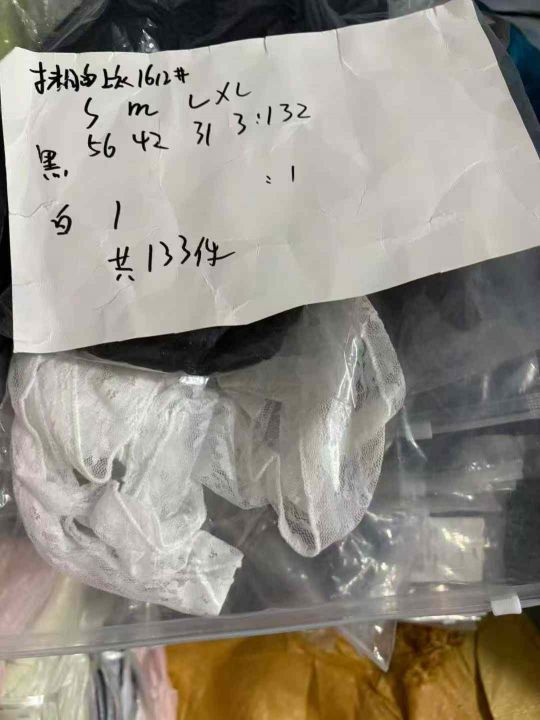 抹胸上衣1612#
S M L XL
黑 56 42 31 3:132
:1
白 1
共133件